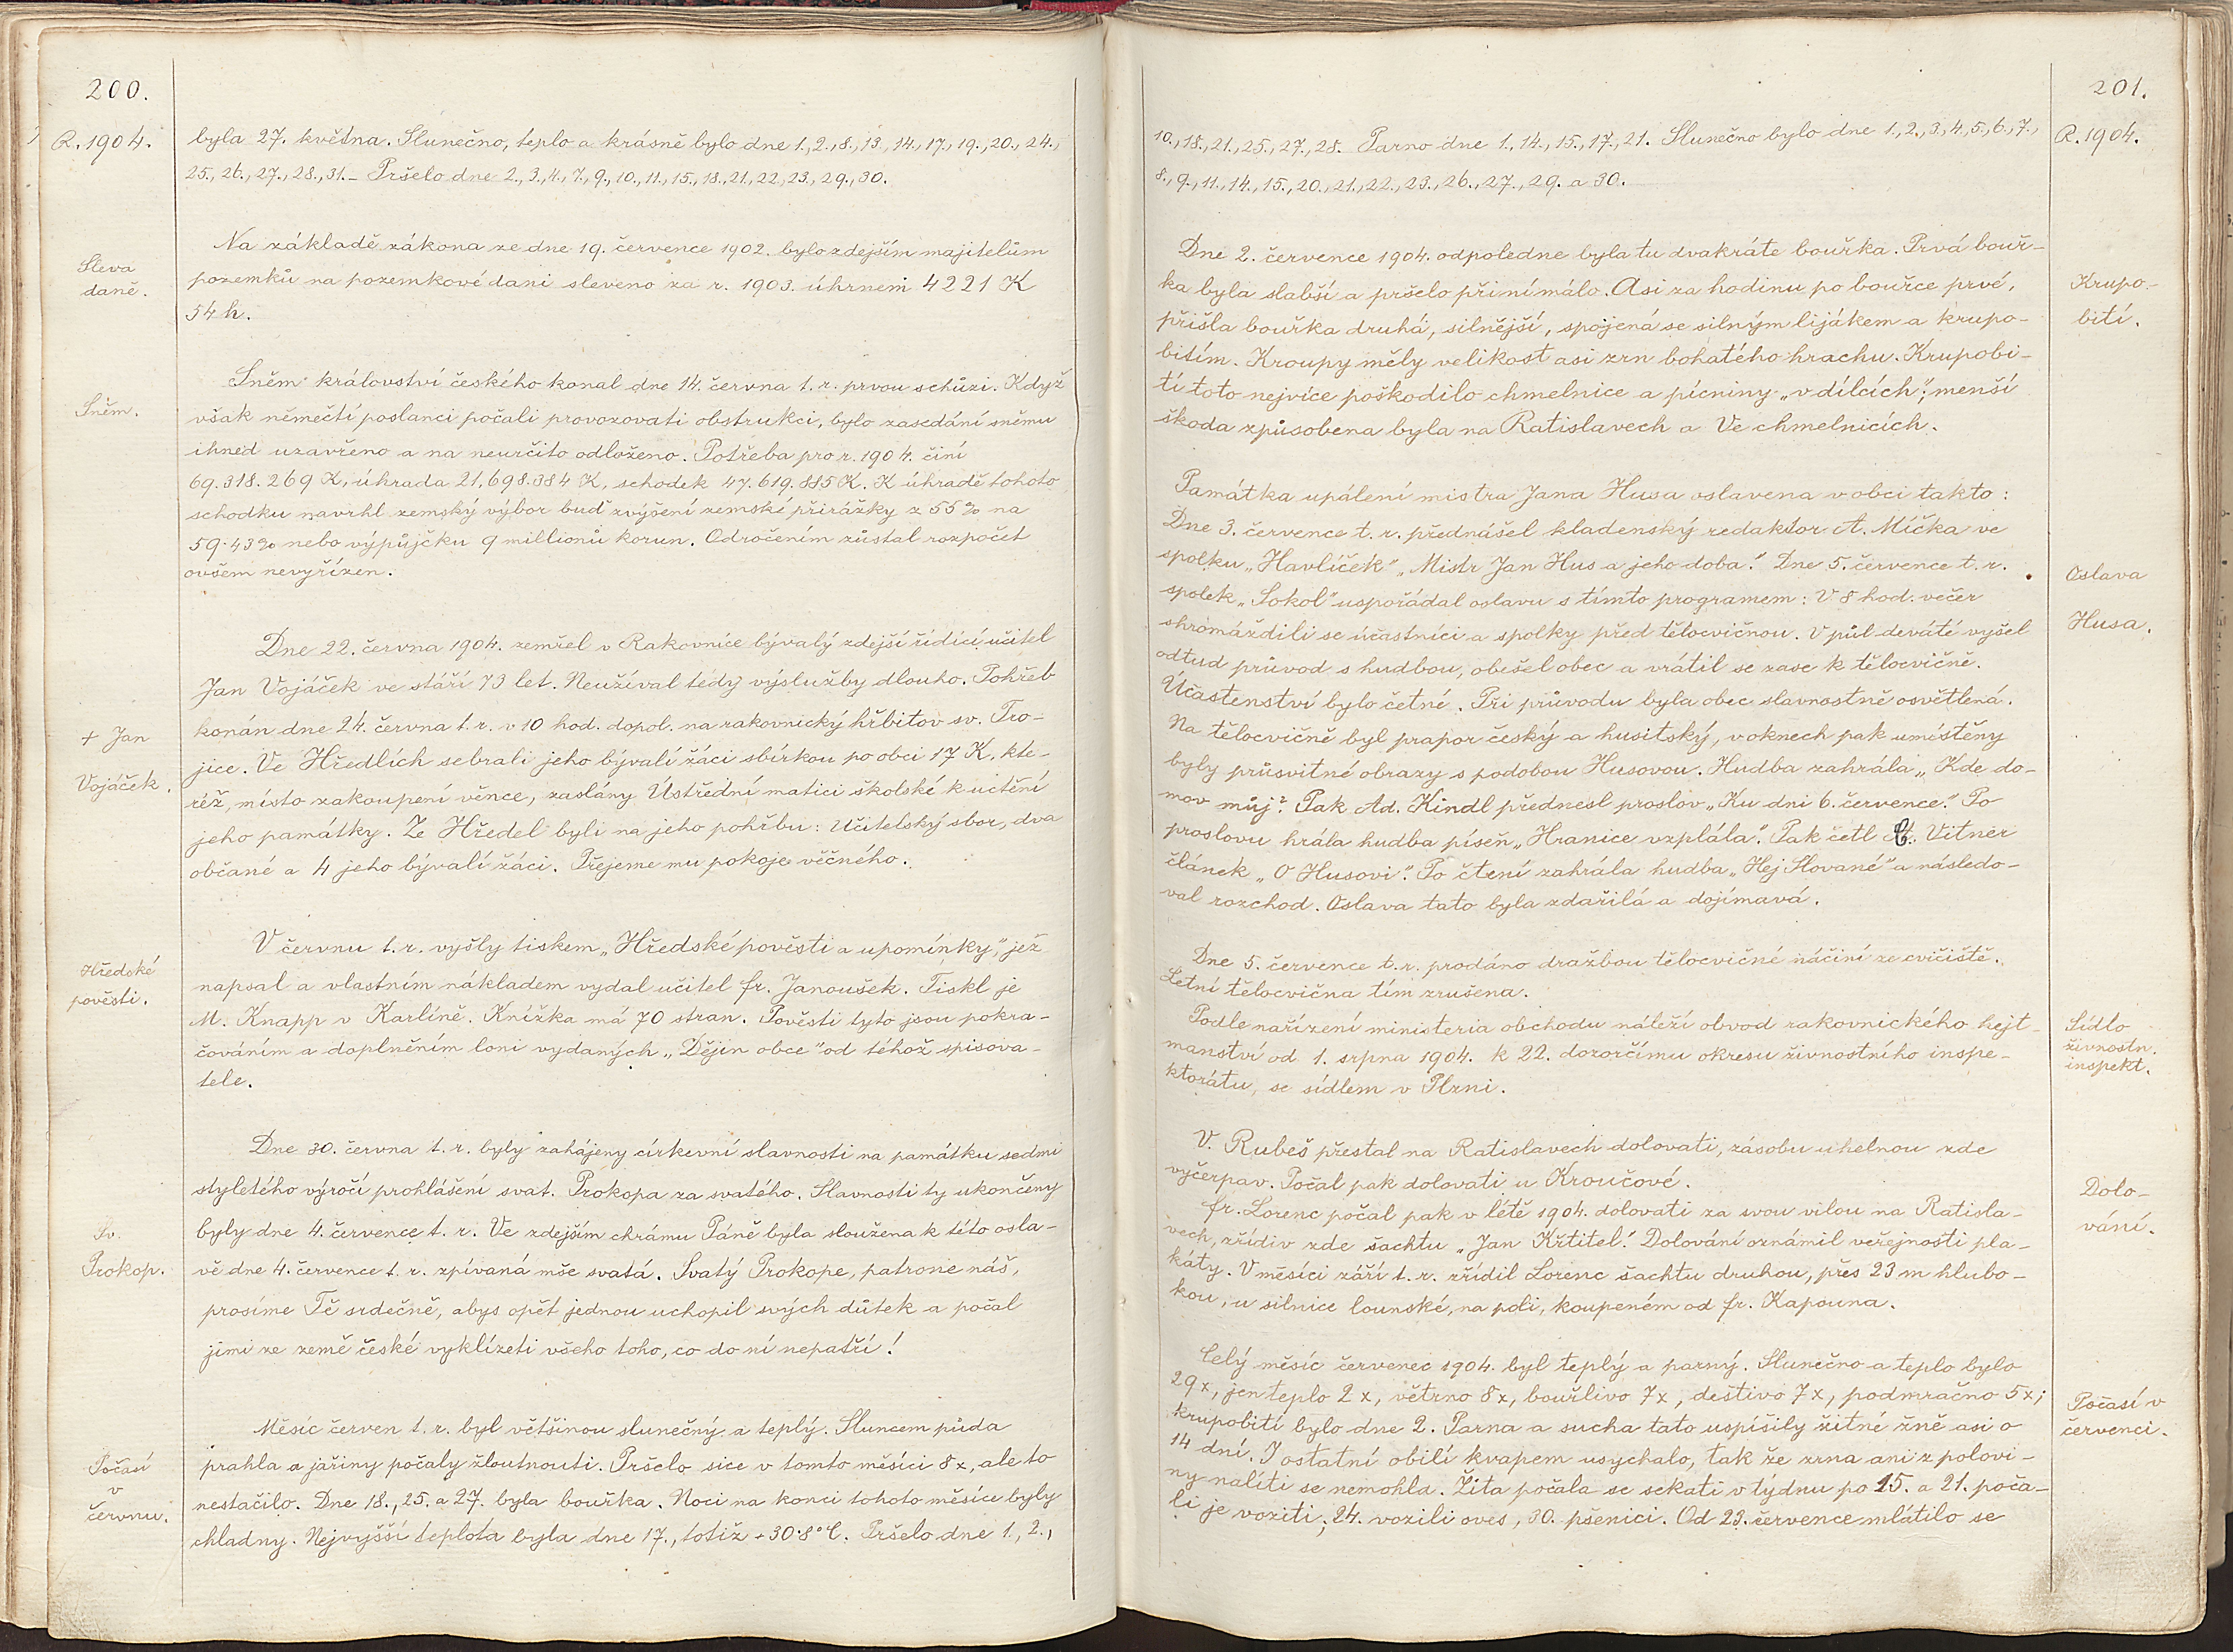 200.
R. 1904.
byla 27. května. Slunečno, teplo a krásně bylo dne 1., 2., 8., 13., 14., 17., 19., 20., 24.,
25., 26., 27., 28., 31. – Pršelo dne 2., 3., 4., 7., 9., 10., 11., 15., 18., 21., 22., 23., 29., 30.
Sleva
daně.
Na základě zákona ze dne 19. července 1902. bylo zdejším majitelům
pozemků na pozemkové dani sleveno za r. 1903. úhrnem 4221 K
54 h.
Sněm.
Sněm království českého konal dne 14. června t. r. prvou schůzi. Když
však němečtí poslanci počali provozovati obstrukci, bylo zasedání sněmu
ihned uzavřeno a na neurčito odloženo. Potřeba pro r. 1904. činí
69.318.269 K, úhrada 21,698.384 K, schodek 47.619.885 K. K úhradě tohoto
schodku navrhl zemský výbor buď zvýšení zemské přirážky z 55% na
59·43% nebo výpůjčku 9 millionů korun. Odročením zůstal rozpočet
ovšem nevyřízen.
+ Jan
Vojáček.
Dne 22. června 1904. zemřel v Rakovníce bývalý zdejší řídící učitel
Jan Vojáček ve stáří 73 let. Neužíval tedy výslužby dlouho. Pohřeb
konán dne 24. června t. r. v 10 hod. dopol. na rakovnický hřbitov sv. Tro-
jice. Ve Hředlích sebrali jeho bývalí žáci sbírkou po obci 17 K, kte-
réž, místo zakoupení věnce, zaslány Ústřední matici školské k uctění
jeho památky. Ze Hředel byli na jeho pohřbu: Učitelský sbor, dva
občané a 4 jeho bývalí žáci. Přejeme mu pokoje věčného.
Hředské
pověsti.
V červnu t. r. vyšly tiskem „Hředské pověsti a upomínky", jež
napsal a vlastním nákladem vydal učitel fr. Janoušek. Tiskl je
M. Knapp v Karlíně. Knížka má 70 stran. Pověsti tyto jsou pokra-
čováním a doplněním loni vydaných „Dějin obce" od téhož spisova-
tele.
Sv.
Prokop.
Dne 30. června t. r. byly zahájeny církevní slavnosti na památku sedmi
styletého výročí prohlášení svat. Prokopa za svatého. Slavnosti ty ukončeny
byly dne 4. července t. r. Ve zdejším chrámu Páně byla sloužena k této osla-
vě dne 4. července t. r. zpívaná mše svatá. Svatý Prokope, patrone náš,
prosíme Tě srdečně, abys opět jednou uchopil svých důtek a počal
jimi ze země české vyklízeti všeho toho, co do ní nepatří!
Počasí
v
červnu.
Měsíc červen t. r. byl většinou slunečný a teplý. Sluncem půda
prahla a jařiny počaly žloutnouti. Pršelo sice v tomto měsíci 8x, ale to
nestačilo. Dne 18., 25. a 27. byla bouřka. Noci na konci tohoto měsíce byly
chladny. Nejvyšší teplota byla dne 17., totiž + 30·8° C. Pršelo dne 1., 2.,
201.
R. 1904.
10., 18., 21., 25., 27., 28. Parno dne 1., 14., 15., 17., 21. Slunečno bylo dne 1., 2., 3., 4., 5., 6., 7.,
8., 9., 11., 14., 15., 20., 21., 22., 23., 26., 27., 29. a 30.
Krupo-
bití.
Dne 2. července 1904. odpoledne byla tu dvakráte bouřka. Prvá bouř-
ka byla slabší a pršelo při ní málo. Asi za hodinu po bouřce prvé,
přišla bouřka druhá, silnější, spojená se silným lijákem a krupo-
bitím. Kroupy měly velikost asi zrn bohatého hrachu. Krupobi-
tí toto nejvíce poškodilo chmelnice a pícniny „v dílcích"; menší
škoda způsobena byla na Ratislavech a Ve chmelnicích.
Oslava
Husa.
Památka upálení mistra Jana Husa oslavena v obci takto:
Dne 3. července t. r. přednášel kladenský redaktor A. Míčka ve
spolku „Havlíček" „Mistr Jan Hus a jeho doba." Dne 5. července t. r.
spolek „Sokol" uspořádal oslavu s tímto programem: V 8 hod. večer
shromáždili se účastníci a spolky před tělocvičnou. V půl deváté vyšel
odtud průvod s hudbou, obešel obec a vrátil se zase k tělocvičně.
Účastenství bylo četné. Při průvodu byla obec slavnostně osvětlená.
Na tělocvičně byl prapor český a husitský, v oknech pak umístěny
byly průsvitné obrazy s podobou Husovou. Hudba zahrála „Kde do-
mov můj?" Pak Ad. Kindl přednesl proslov „Ku dni 6. července." Po
proslovu hrála hudba píseň „Hranice vzplála". Pak četl Vitner
článek „O Husovi". Po čtení zahrála hudba „Hej Slované" a následo-
val rozchod. Oslava tato byla zdařilá a dojímavá.
Dne 5. července t. r. prodáno dražbou tělocvičné náčiní ze cvičiště.
Letní tělocvična tím zrušena.
Sídlo
živnostn.
inspekt.
Podle nařízení ministeria obchodu náleží obvod rakovnického hejt-
manství od 1. srpna 1904. k 22. dozorčímu okresu živnostního inspe-
ktorátu, se sídlem v Plzni.
Dolo-
vání.
V. Rubeš přestal na Ratislavech dolovati, zásobu uhelnou zde
vyčerpav. Počal pak dolovati u Kroučové.
fr. Lorenc počal pak v létě 1904. dolovati za svou vilou na Ratisla-
vech, zřídiv zde šachtu „Jan Křtitel". Dolování oznámil veřejnosti pla-
káty. V měsíci září t. r. zřídil Lorenc šachtu druhou, přes 23 m hlubo-
kou, u silnice lounské, na poli, koupeném od fr. Kapouna.
Počasí v
červenci.
Celý měsíc červenec 1904. byl teplý a parný. Slunečno a teplo bylo
29x, jen teplo 2x, větrno 8x, bouřlivo 7x, deštivo 7x, podmračno 5x;
krupobití bylo dne 2. Parna a sucha tato uspíšily žitné žně asi o
14 dní. I ostatní obilí kvapem usychalo, tak že zrna ani z polovi-
ny naliti se nemohla. Žita počala se sekati v týdnu po 15. a 21. poča-
li je voziti; 24. vozili oves, 30. pšenici. Od 23. července mlátilo se